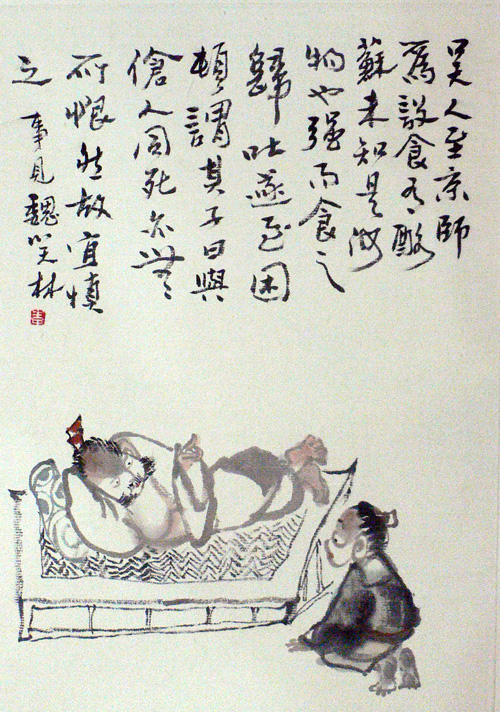 吳人至京師
爲設食有酪
蘇未知是何
物也強而食之
歸吐遂至困
頓謂其子曰與
傖人同死亦無
所恨然故宜慎
之
事見魏笑林